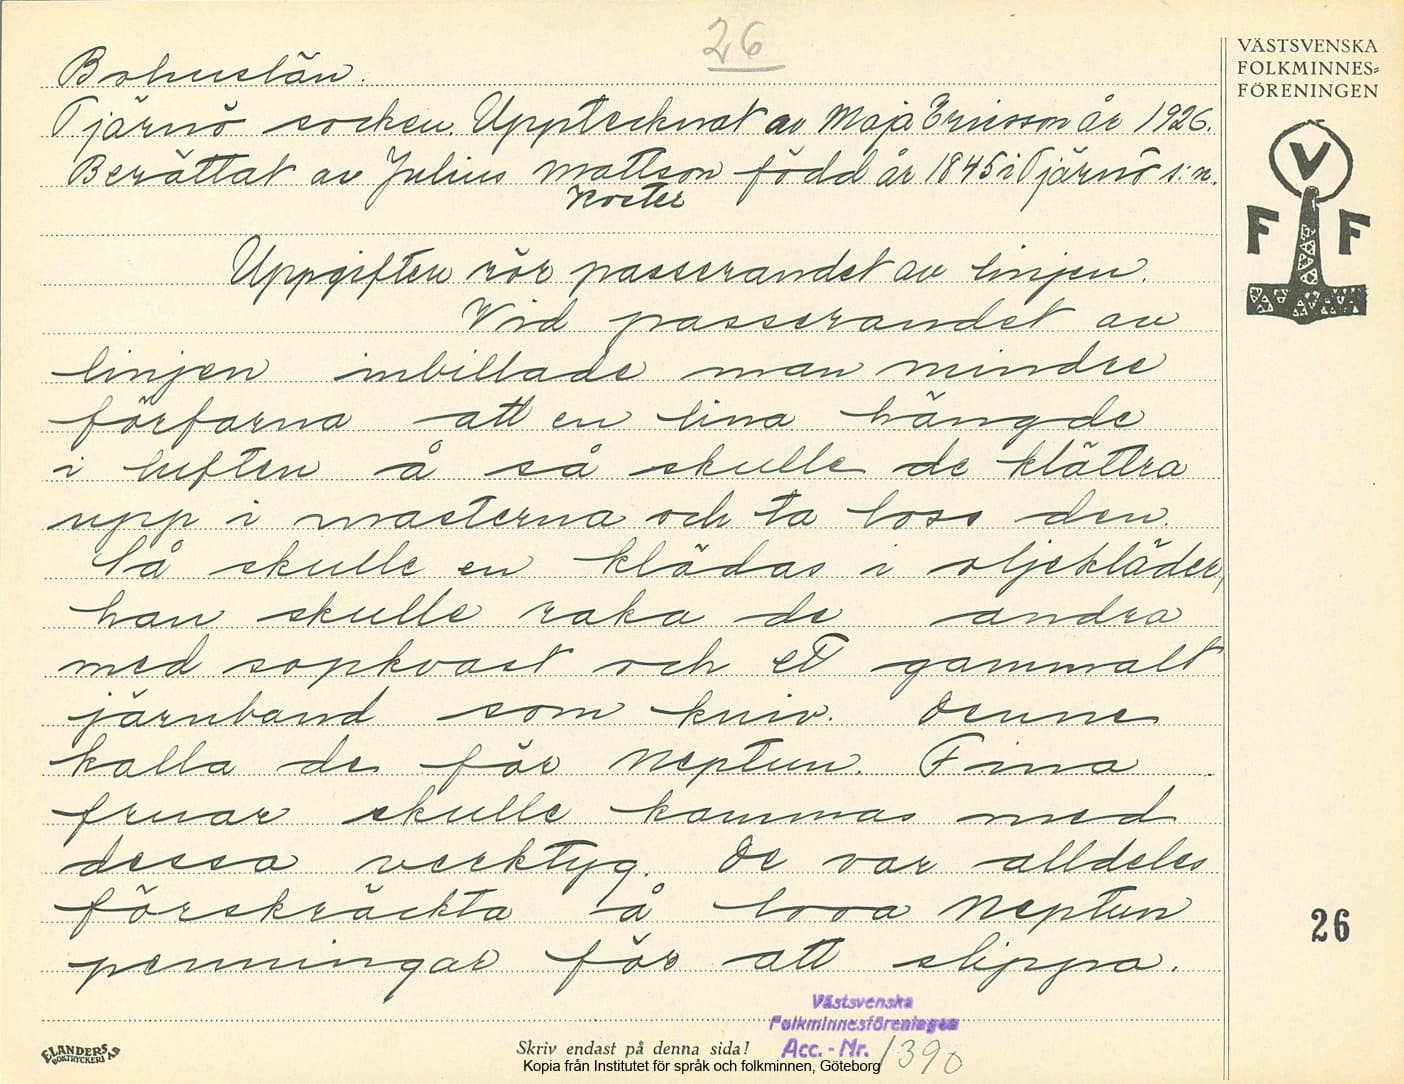 26
VÄSTSVENSKA
FOLKMINNES=
FÖRENINGEN
V
F F
Bohuslän.
Tjärnö socken. Upptecknat av Maja Ericsson år 1926.
Berättat av Julius Mattson född år 1845 i Tjärnö s:n.
Koster
Uppgiften rör passerandet av linjen.
Vid passerandet av
linjen inbillade man mindre
förfarna att en lina hängde
i luften å så skulle de klättra
upp i masterna och ta loss den.
Så skulle en klädas i oljekläder,
han skulle raka de andra
med sopkvast och ett gammalt
järnband som kniv. Denne
kalla de för Neptun. Fina
fruar skulle kammas med
dessa verktyg. De var alldeles
förskräckta å lova Neptun
penningar för att slippa.
26
Västsvenska
Folkminnesföreningen
Acc. - Nr. 1390
ELANDERS
BOKTRYCKERI AB
Skriv endast på denna sida!
Kopia från Institutet för språk och folkminnen, Göteborg